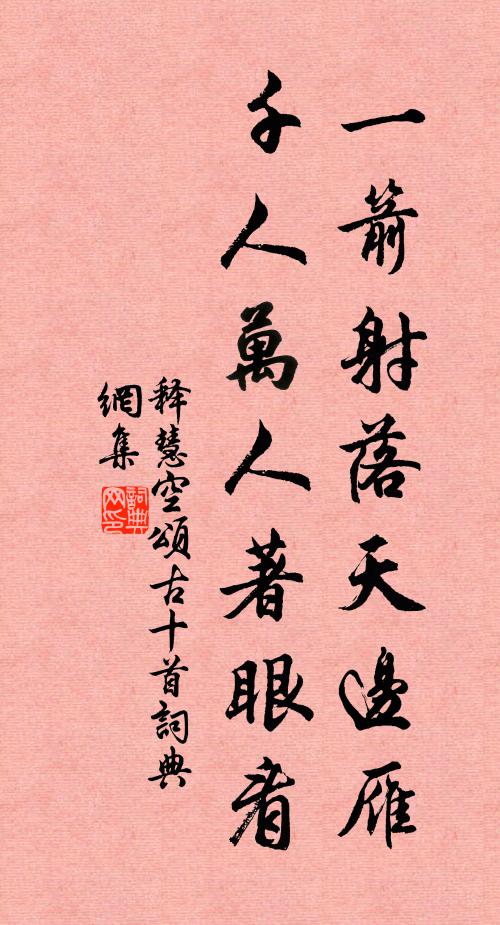 一箭射落天邊雁
千人萬人著眼看
释慧空頌古十首詞典
網集
詞典網印